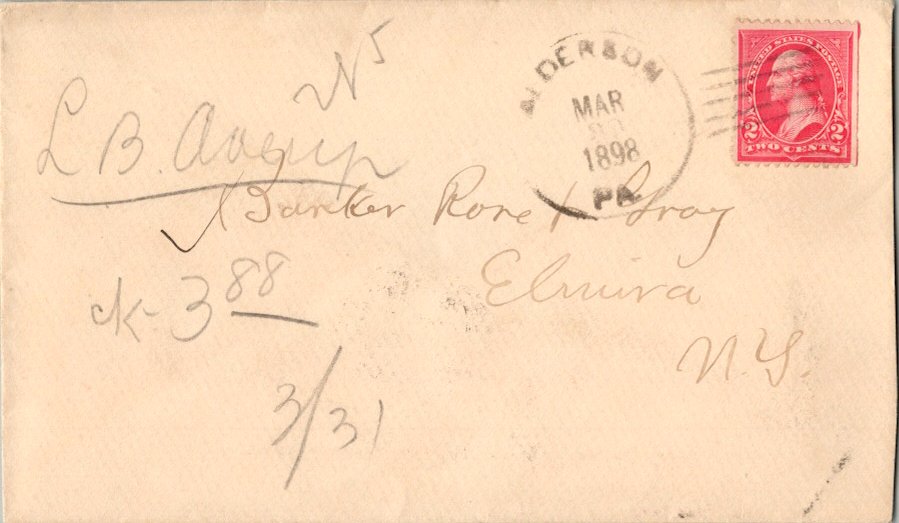 ALDERSON
MAR
1898
PA.
UNITED STATES POSTAGE
2 2
TWO CENTS
L B.
Banker Rose & Gray
Elmira
N.Y.
ck 3 88
3/31